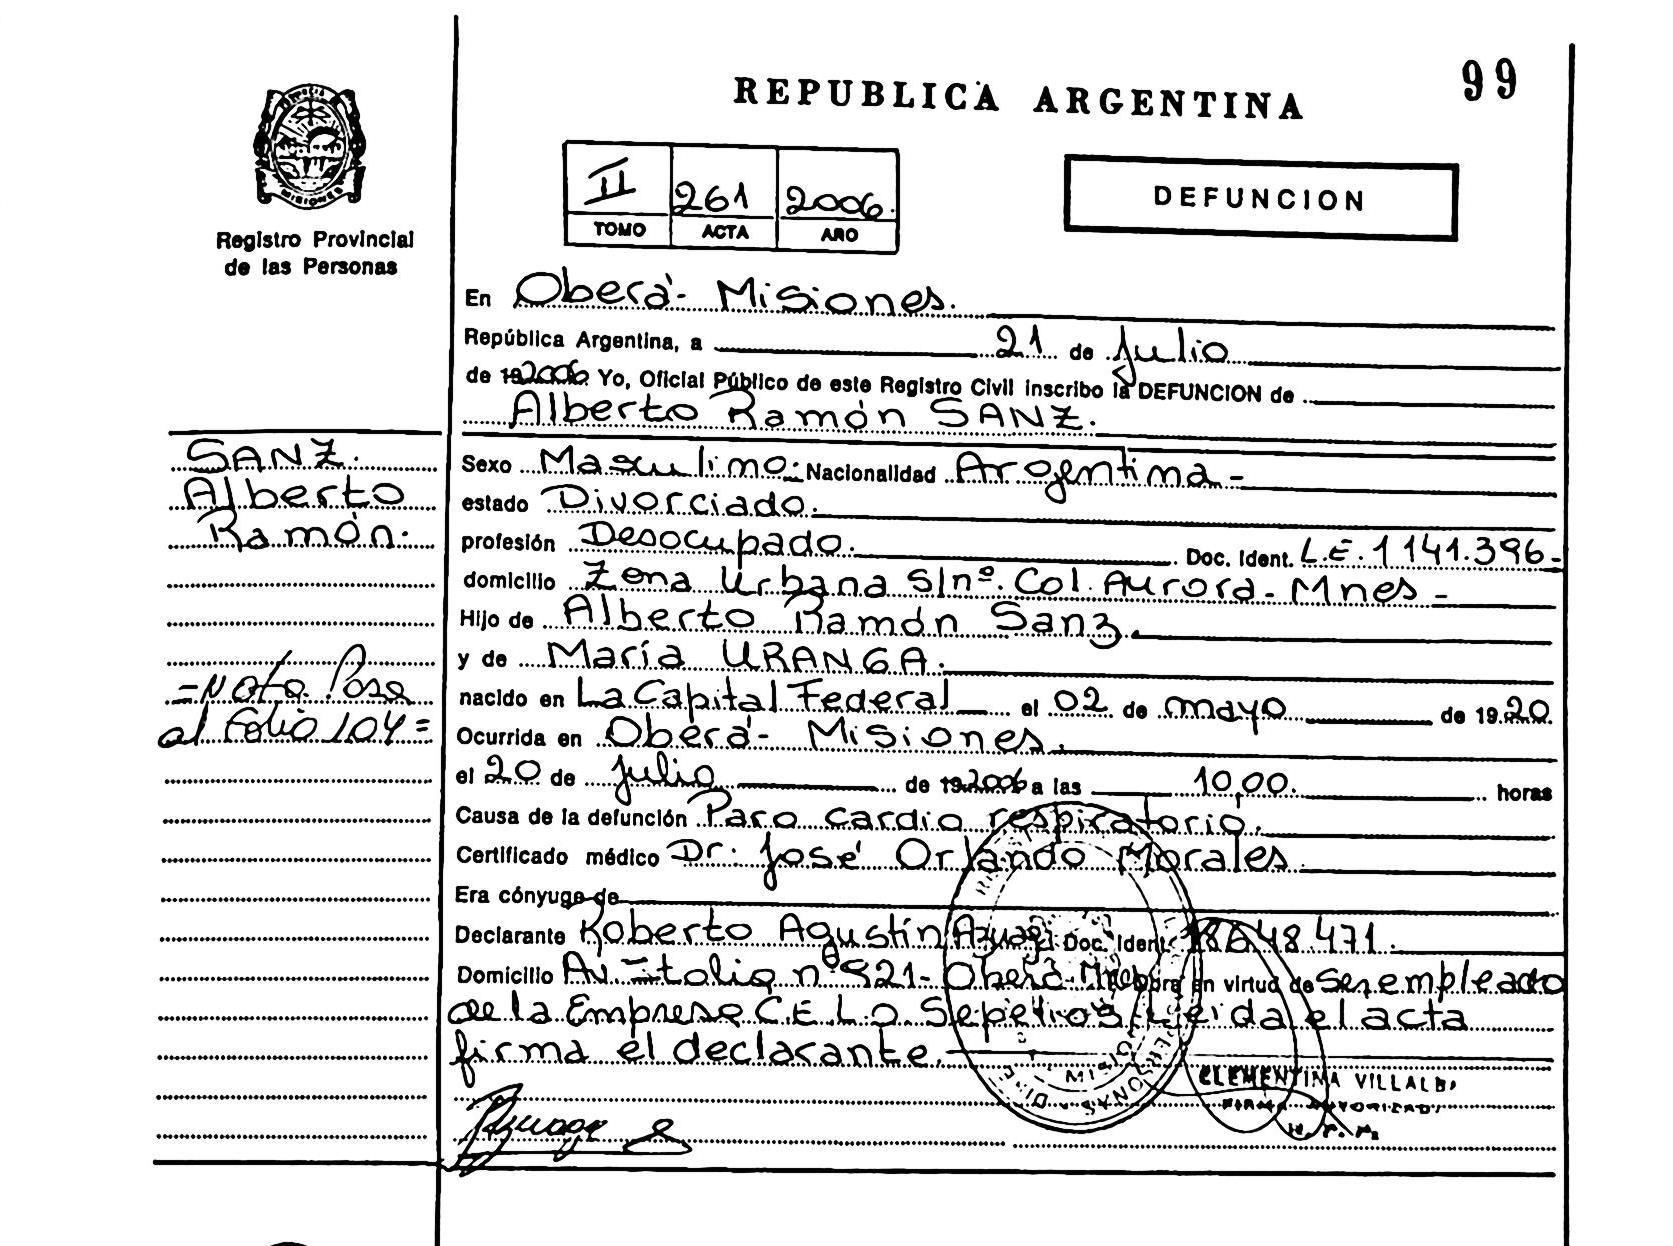 99
REPUBLICA ARGENTINA
II 261 2006.
TOMO ACTA AÑO
DEFUNCION
MISIONES
Registro Provincial
de las Personas
En Oberá- Misiones.
República Argentina, a 21 de Julio
de 192006 Yo, Oficial Público de este Registro Civil inscribo la DEFUNCION de
Alberto Ramón SANZ.
SANZ.
Alberto
Ramón.
=Nota Pasa
al Folio 104=
Sexo Masculino. Nacionalidad Argentina-
estado Divorciado.
profesión Desocupado. Doc. Ident. L.E. 1141.396-
domicilio Zona Urbana S/nº. Col. Aurora- Mnes-
Hijo de Alberto Ramón Sanz.
y de María URANGA.
nacido en La Capital Federal el 02 de mayo de 1920.
Ocurrida en Oberá- Misiones.
el 20 de Julio de 192006 a las 10,00. horas
Causa de la defunción Paro cardio respiratorio.
Certificado médico Dr. José Orlando Morales.
Era cónyuge de
Declarante Roberto Agustín Doc. Ident. 471.
Domicilio Av. Italia nº 921- Oberá- Obra en virtud de ser empleado
de la Empresa C.E.L.O. Sepelios/Leida el acta
firma el declarante.
MISIONES
PERSONAS
CLEMENTINA VILLALBA
FIRMA AUTORIZADA